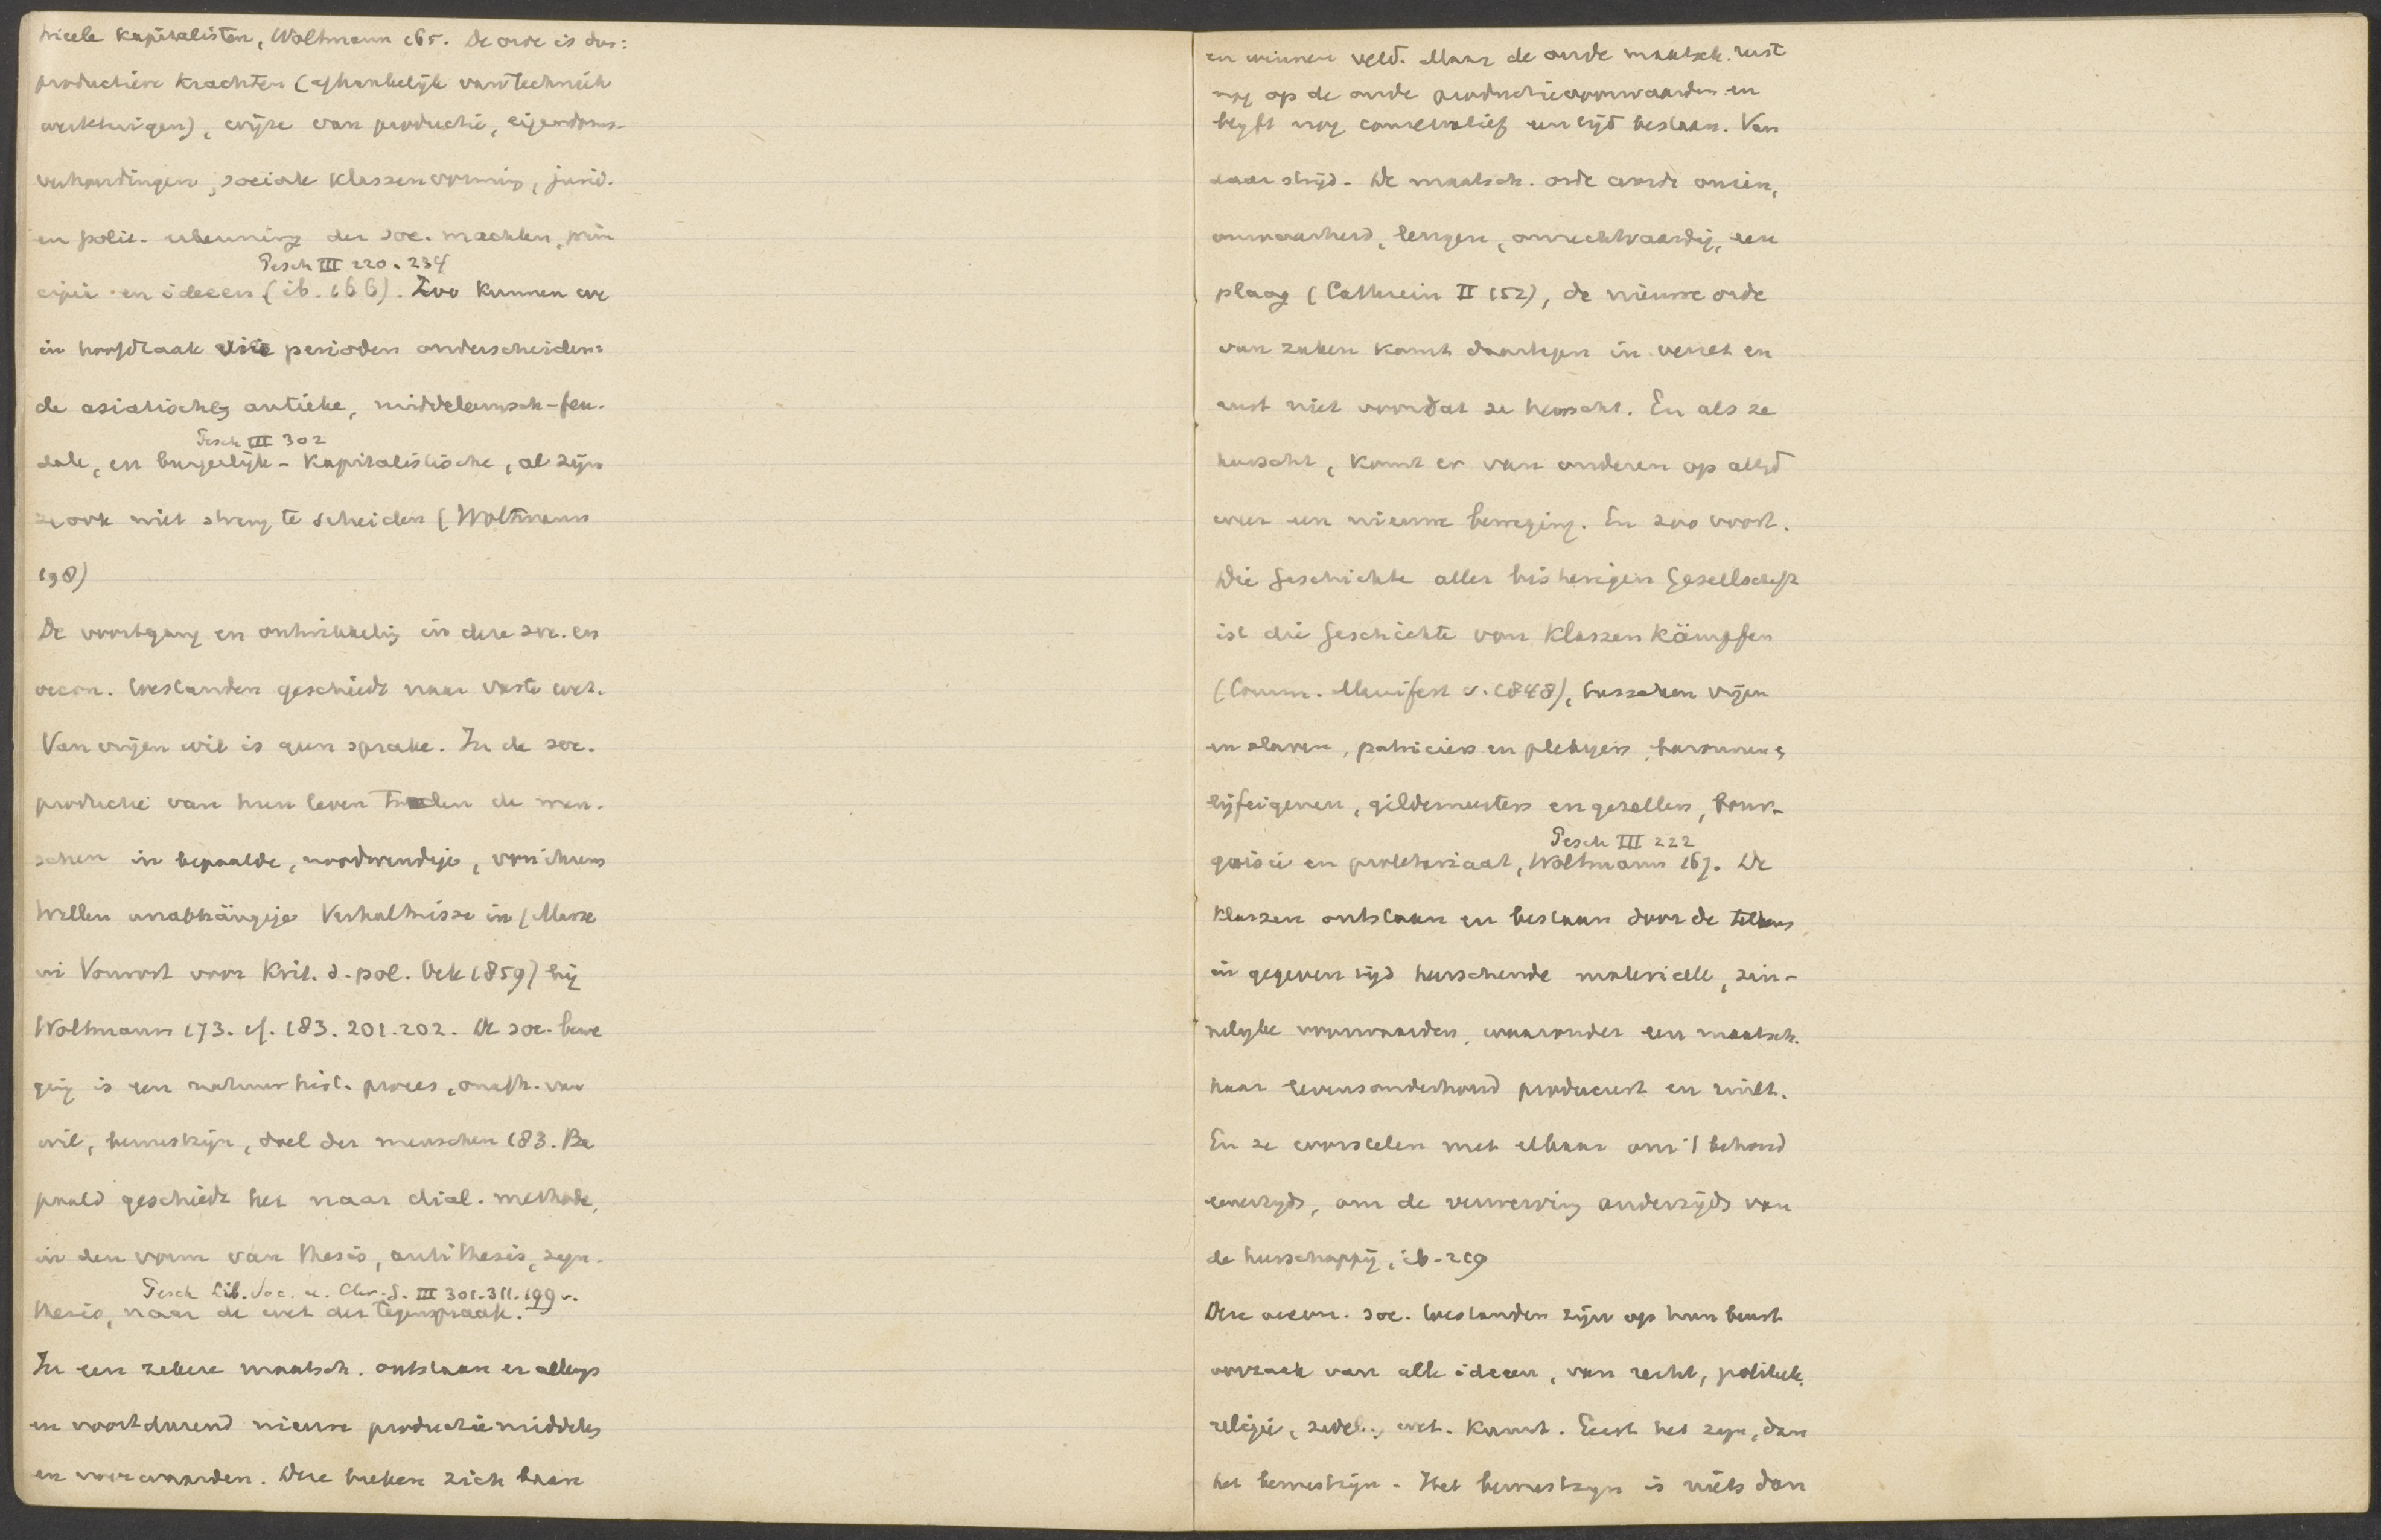 trieele kapitalisten, Woltmann 165. De orde is dus:
productieve krachten (afhankelijk van techniek
werktuigen), wijze van productie, eigendoms-
verhoudingen, sociale klassenvorming, jurid.
en polit. erkenning der soc. machten, prin
Pesch III 220. 234
cipië en ideeen (ib. 166). Zoo kunnen we
in hoofdzaak vier perioden onderscheiden:
de asiatische, antieke, middeleeuwsch-feu-
Pesch III 302
dale, en burgerlijk-kapitalistische, al zijn
ze ook niet streng te scheiden (Woltmann
198)
De voortgang en ontwikkeling in deze soc. en
oecon. toestanden geschiedt naar vaste wet.
Van vrijen wil is geen sprake. In de soc.
productie van hun leven treden de men-
schen in bepaalde, noodwendige, von ihrem
Willen unabhängige Verhältnisse in (Marx
in Vorwort voor Krit. d. pol. Oek 1859) bij
Woltmann 173. cf. 183. 201. 202. De soc. bewe
ging is een natuurhist. proces, onafh. van
wil, bewustzijn, doel der menschen 183. Be
paald geschiedt het naar dial. methode,
in den vorm van thesis, antithesis, syn-
Pesch Lib. Soc. u. Chr. G. III 301-311. 199 v.
thesis, naar de wet der tegenspraak.
In een zekere maatsch. ontstaan er allengs
en voortdurend nieuwe productiemiddelen
en voorwaarden. Deze breken zich baan
en winnen veld. Maar de oude maatsch. rust
nog op de oude productievoorwaarden en
blyft nog conservatief een tijd bestaan. Van
daar strijd. De maatsch. orde wordt onzin,
onwaarheid, leugen, onrechtvaardig, een
plaag (Cathrein II 152), de nieuwe orde
van zaken komt daartegen in verzet en
rust niet voordat ze heerscht. En als ze
heerscht, komt er van onderen op altijd
weer een nieuwe beweging. En zoo voort.
Die Geschichte aller bisherigen Gesellschaft
ist die Geschichte von Klassenkämpfen
(Comm. Manifest v. 1848), tusschen vrijen
en slaven, patriciers en plebejers, baronnen en
lijfeigenen, gildemeesters en gezellen, bour-
Pesch III 222
geoisie en proletariaat, Woltmann 167. De
klassen ontstaan en bestaan door de telkens
in gegeven tijd heerschende materieele, zin-
nelyke voorwaarden, waaronder een maatsch.
haar levensonderhoud produceert en ruilt.
En ze worstelen met elkaar om 't behoud
eenerzyds, om de verwerving anderzijds van
de heerschappij, ib. 219
Deze oecon. soc. toestanden zijn op hun beurt
oorzaak van alle ideeen, van recht, politiek,
religie, zedel., wet. kunst. Eerst het zyn, dan
het bewustzijn. Het bewustzyn is niets dan